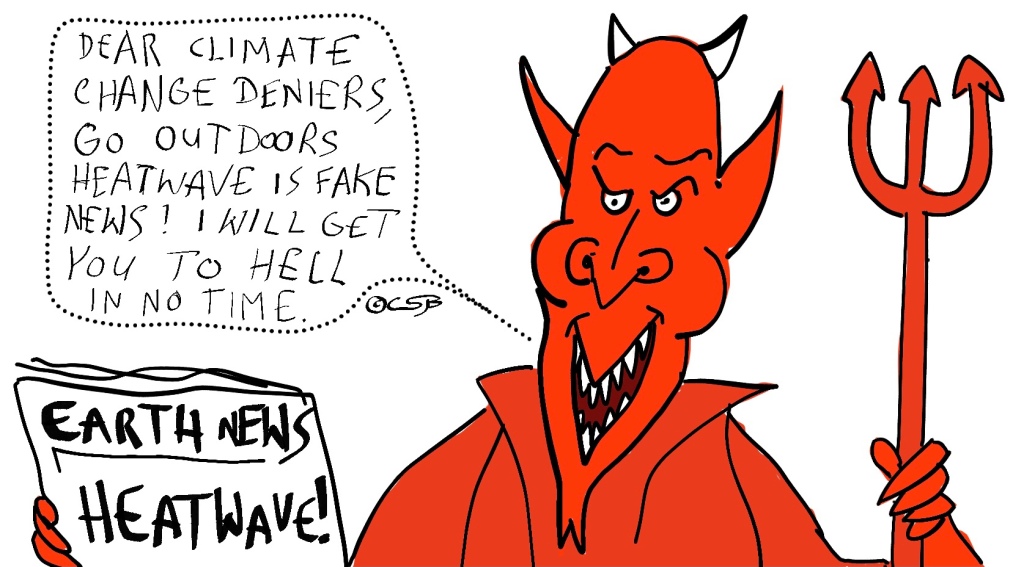 DEAR CLIMATE
CHANGE DENIERS,
GO OUTDOORS
HEATWAVE IS FAKE
NEWS! I WILL GET
YOU TO HELL
IN NO TIME.
©CSB
EARTH NEWS
HEATWAVE!